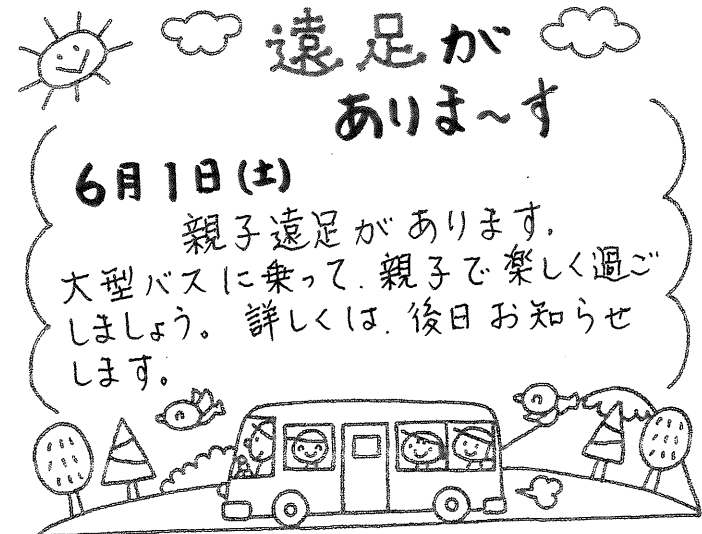 遠足が
ありま~す
6月1日(土)
親子遠足があります。
大型バスに乗って、親子で楽しく過ご
しましょう。詳しくは、後日お知らせ
します。